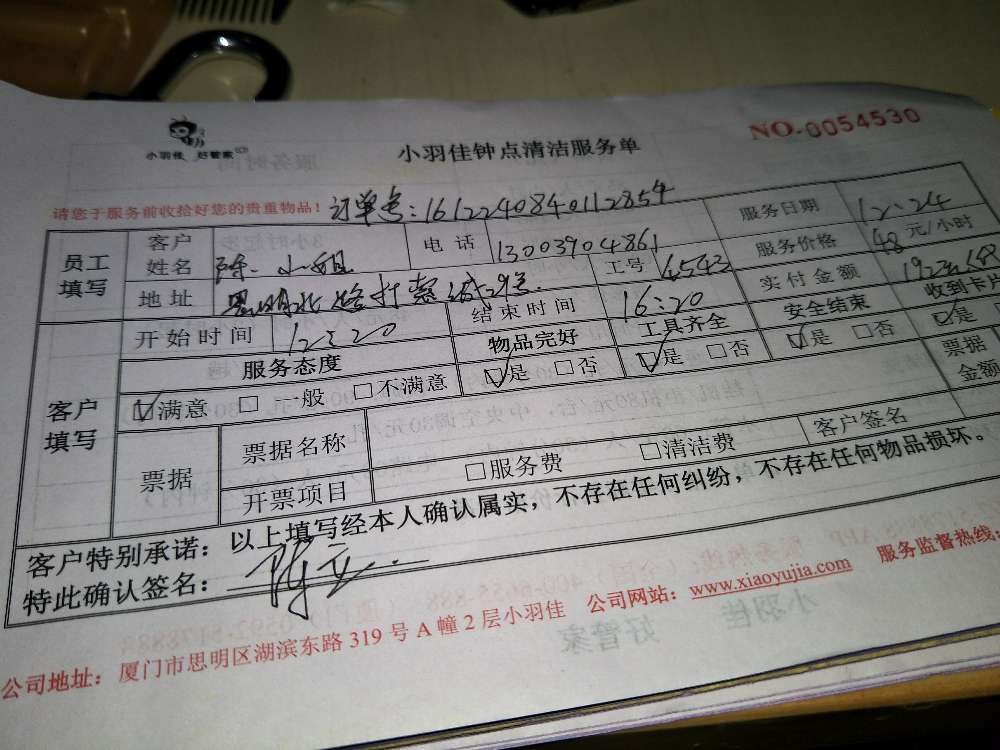 小羽佳 好管家
小羽佳钟点清洁服务单
NO-0054530
请您于服务前收拾好您的贵重物品！ 订单号：1612240840112854
员工填写 客户姓名 陈小姐 电话 13003904861 服务日期 12.24
地址 思明北路 工号 4543 服务价格 48元/小时
实付金额 192元
开始时间 12:20 结束时间 16:20 安全结束 收到卡片
客户填写 服务态度 物品完好 工具齐全 ☑是 □否 ☑是
☑满意 □一般 □不满意 ☑是 □否 ☑是 □否
票据 票据名称 票据金额
开票项目 □服务费 □清洁费 客户签名
客户特别承诺：以上填写经本人确认属实，不存在任何纠纷，不存在任何物品损坏。
特此确认签名：
公司地址：厦门市思明区湖滨东路319号A幢2层小羽佳 公司网站：www.xiaoyujia.com 服务监督热线：